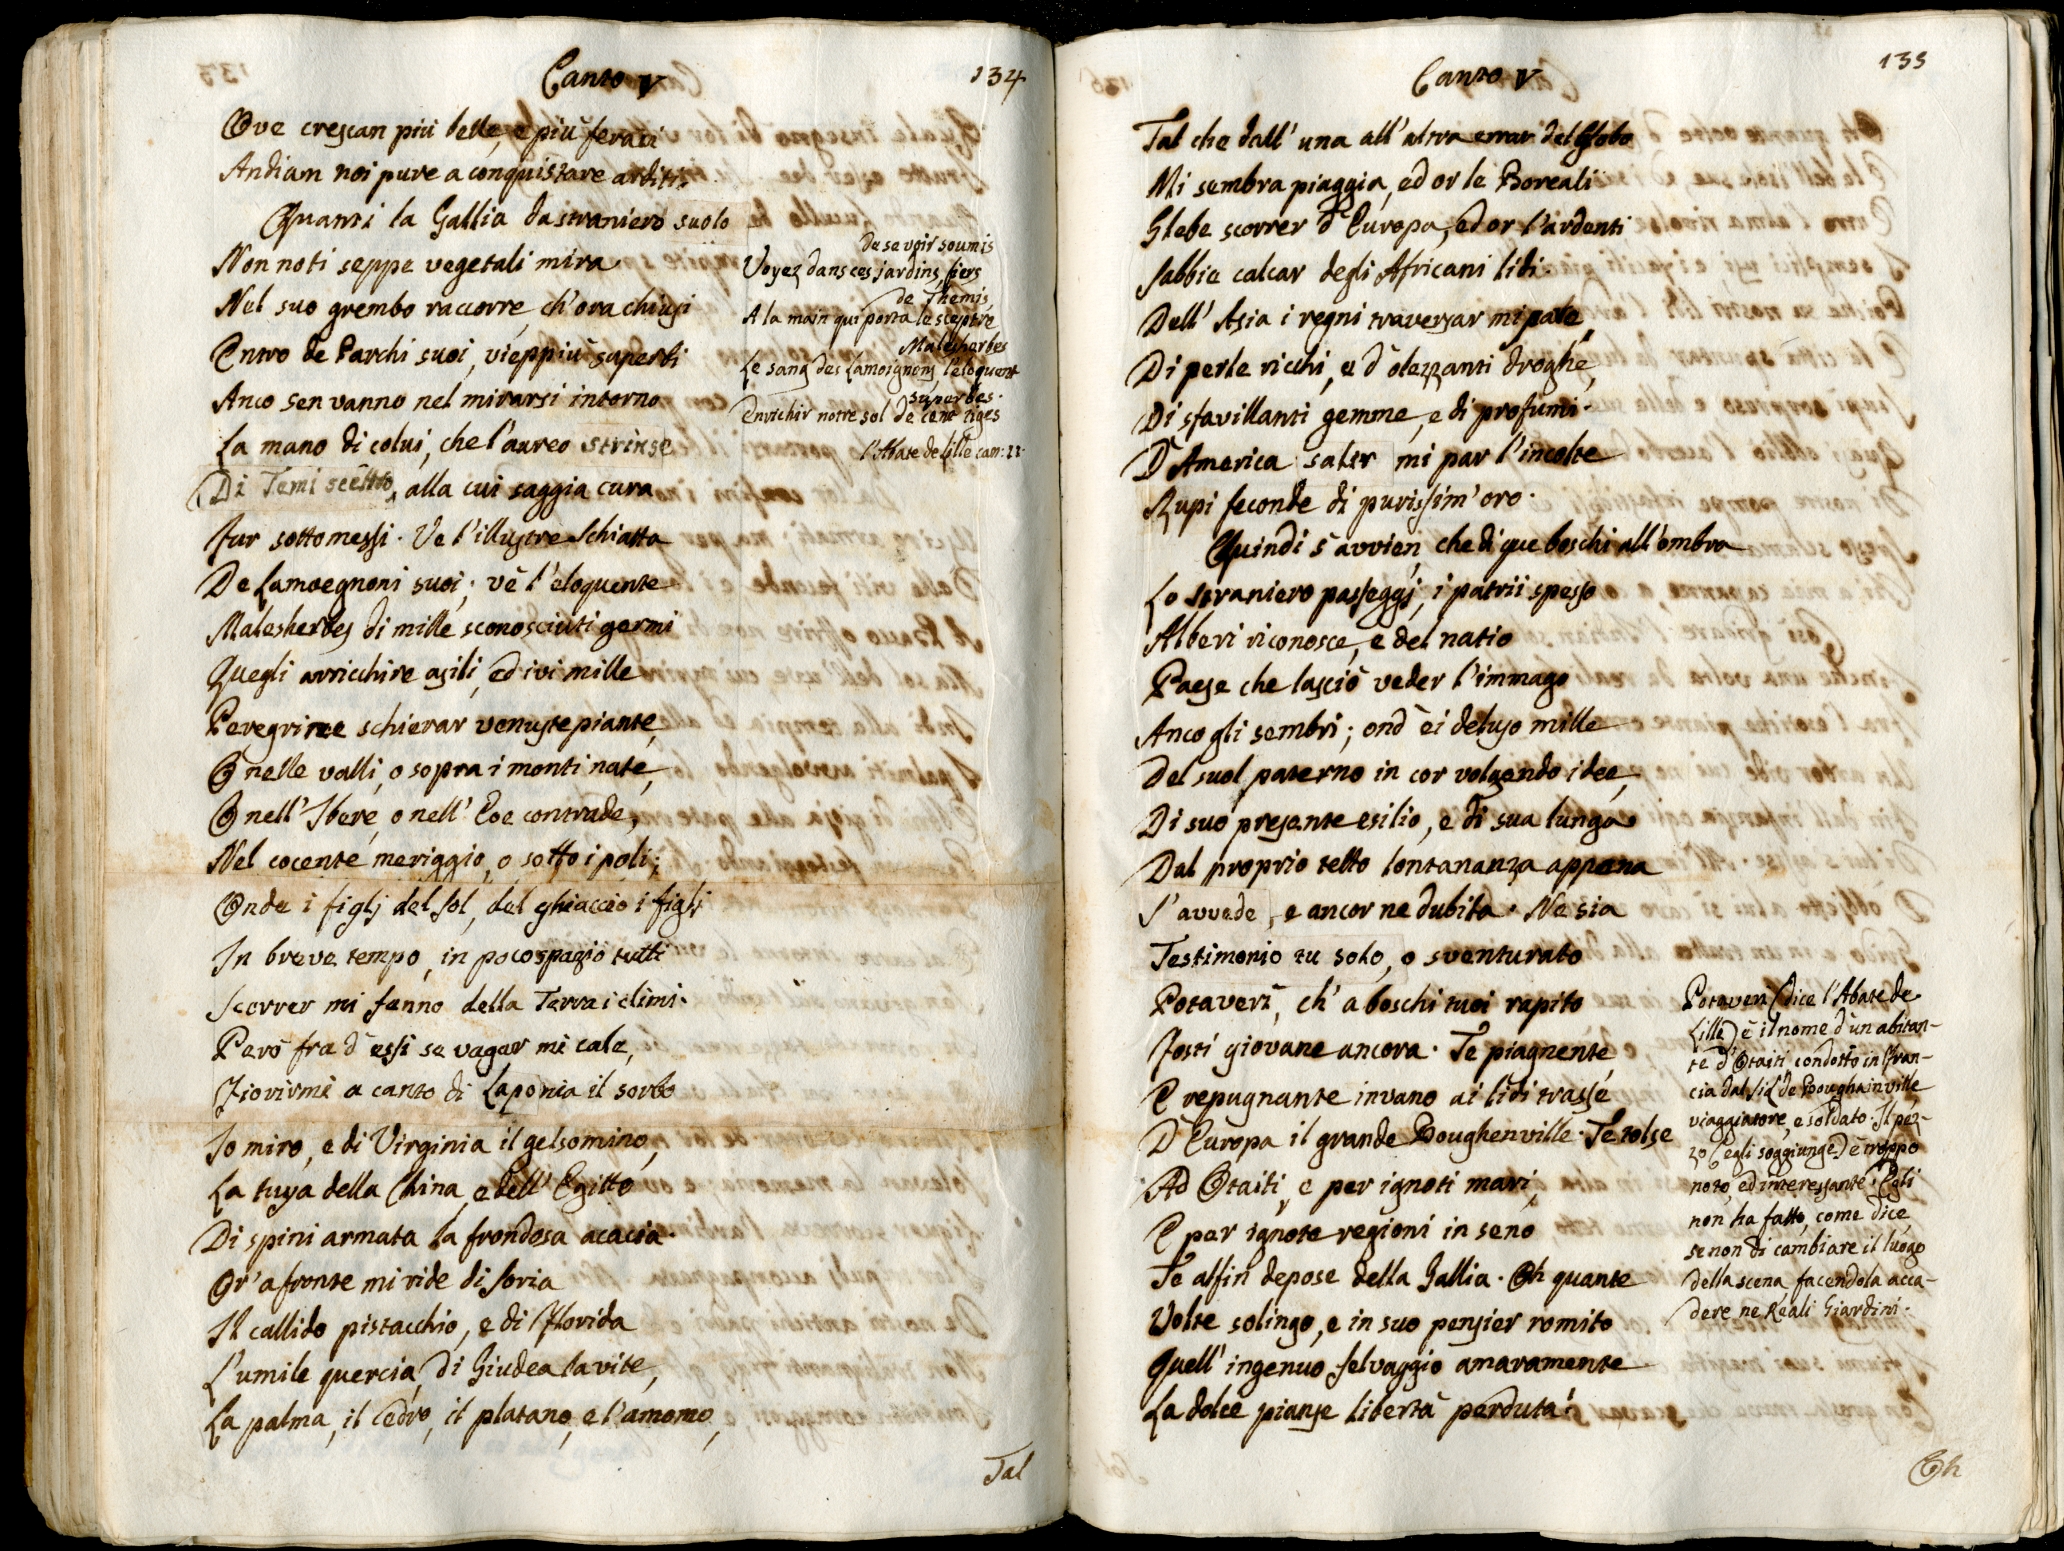 Canto V
134
Ove crescan più belle, e più feraci
Andiam noi pure a conquistare arditi.
Quanti la Gallia da straniero suolo
Non noti seppe vegetali mira
Nel suo grembo raccorre, ch'ora chiusi
Entro de Parchi suoi, vieppiù superbi
Anco sen vanno nel mirarsi intorno
La mano di colui, che l'aureo strinse
Di Temi scettro, alla cui saggia cura
Fur sottomessi. Ve l'illustre Schiatta
De Lamoegnoni suoi; vè l'eloquente
Malesherbes di mille sconosciuti germi
Quegli arricchire asili, ed ivi mille
Peregrine schierar venuste piante,
O nelle valli, o sopra i monti nate,
O nell'Ibere, o nell'Eoe contrade,
Nel cocente meriggio, o sotto i poli;
Onde i figlj del Sol, del ghiaccio i figlj
In breve tempo, in poco spazio tutti
Scorrer mi fanno della Terra i climi.
Però fra d'essi se vagar mi cale,
Fiorirmi a canto di Laponia il sorbo
Io miro, e di Virginia il gelsomino,
La tuya della China, e dell'Egitto
Di spini armata la frondosa acacia.
Or' a fronte mi ride di Soria
Il callido pistacchio, e di Florida
L'umile quercia, di Giudea la vite,
La palma, il Cedro, il platano, e l'amomo,
Tal
de se voir soumis
Voyez dans ces jardins, fiers
de Themis,
A la main qui porta le sceptre
Malesherbes
Le sang des Lamoignons, l'eloquent
superbes.
Enrichir notre sol de cent tiges
l'Abate de Lille can: II.
Canto V
135
Tal che dall'una all'altra errar del Globo
Mi sembra piaggia, ed or le Boreali
Glebe scorrer d'Europa, ed or l'ardenti
Sabbie calcar degli Africani lidi.
Dell'Asia i regni traversar mi pare
Di perle ricchi, e d'olezzanti droghe,
Di sfavillanti gemme, e di profumi.
D'America salir mi par l'incolte
Rupi feconde di purissim'oro.
Quindi s'avvien, che di que boschi all'ombra
Lo straniero passeggj, i patrii spesso
Alberi riconosce, e del natio
Paese che lasciò veder l'immago
Anco gli sembri; ond'ei deluso mille
Del suol paterno in cor volgendo idee,
Di suo presente esilio, e di sua lunga
Dal proprio tetto lontananza appena
S'avvede, e ancor ne dubita. Ne sia
Testimonio tu solo, o sventurato
Potaveri, ch'a boschi tuoi rapito
Fosti giovane ancora. Te piagnente,
E repugnante invano ai lidi trasse
D'Europa il grande Boughenville. Te tolse
Ad Otaiti, e per ignoti mari,
E per ignote regioni in seno
Te alfin depose della Gallia. Oh quante
Volte solingo, e in suo pensier romito
Quell'ingenuo Selvaggio amaramente
La dolce pianse libertà perduta!
Potaveri (dice l'Abate de
Lille) è il nome d'un abitan-
te d'Otaiti condotto in Fran-
cia dal Sig.r de Boughainville
viaggiatore, e soldato. Il pez-
zo (egli soggiunge) è troppo
noto, ed interessante. Egli
non ha fatto, come dice,
se non di cambiare il luogo
della scena, facendola acca-
dere ne Reali Giardini.
Oh